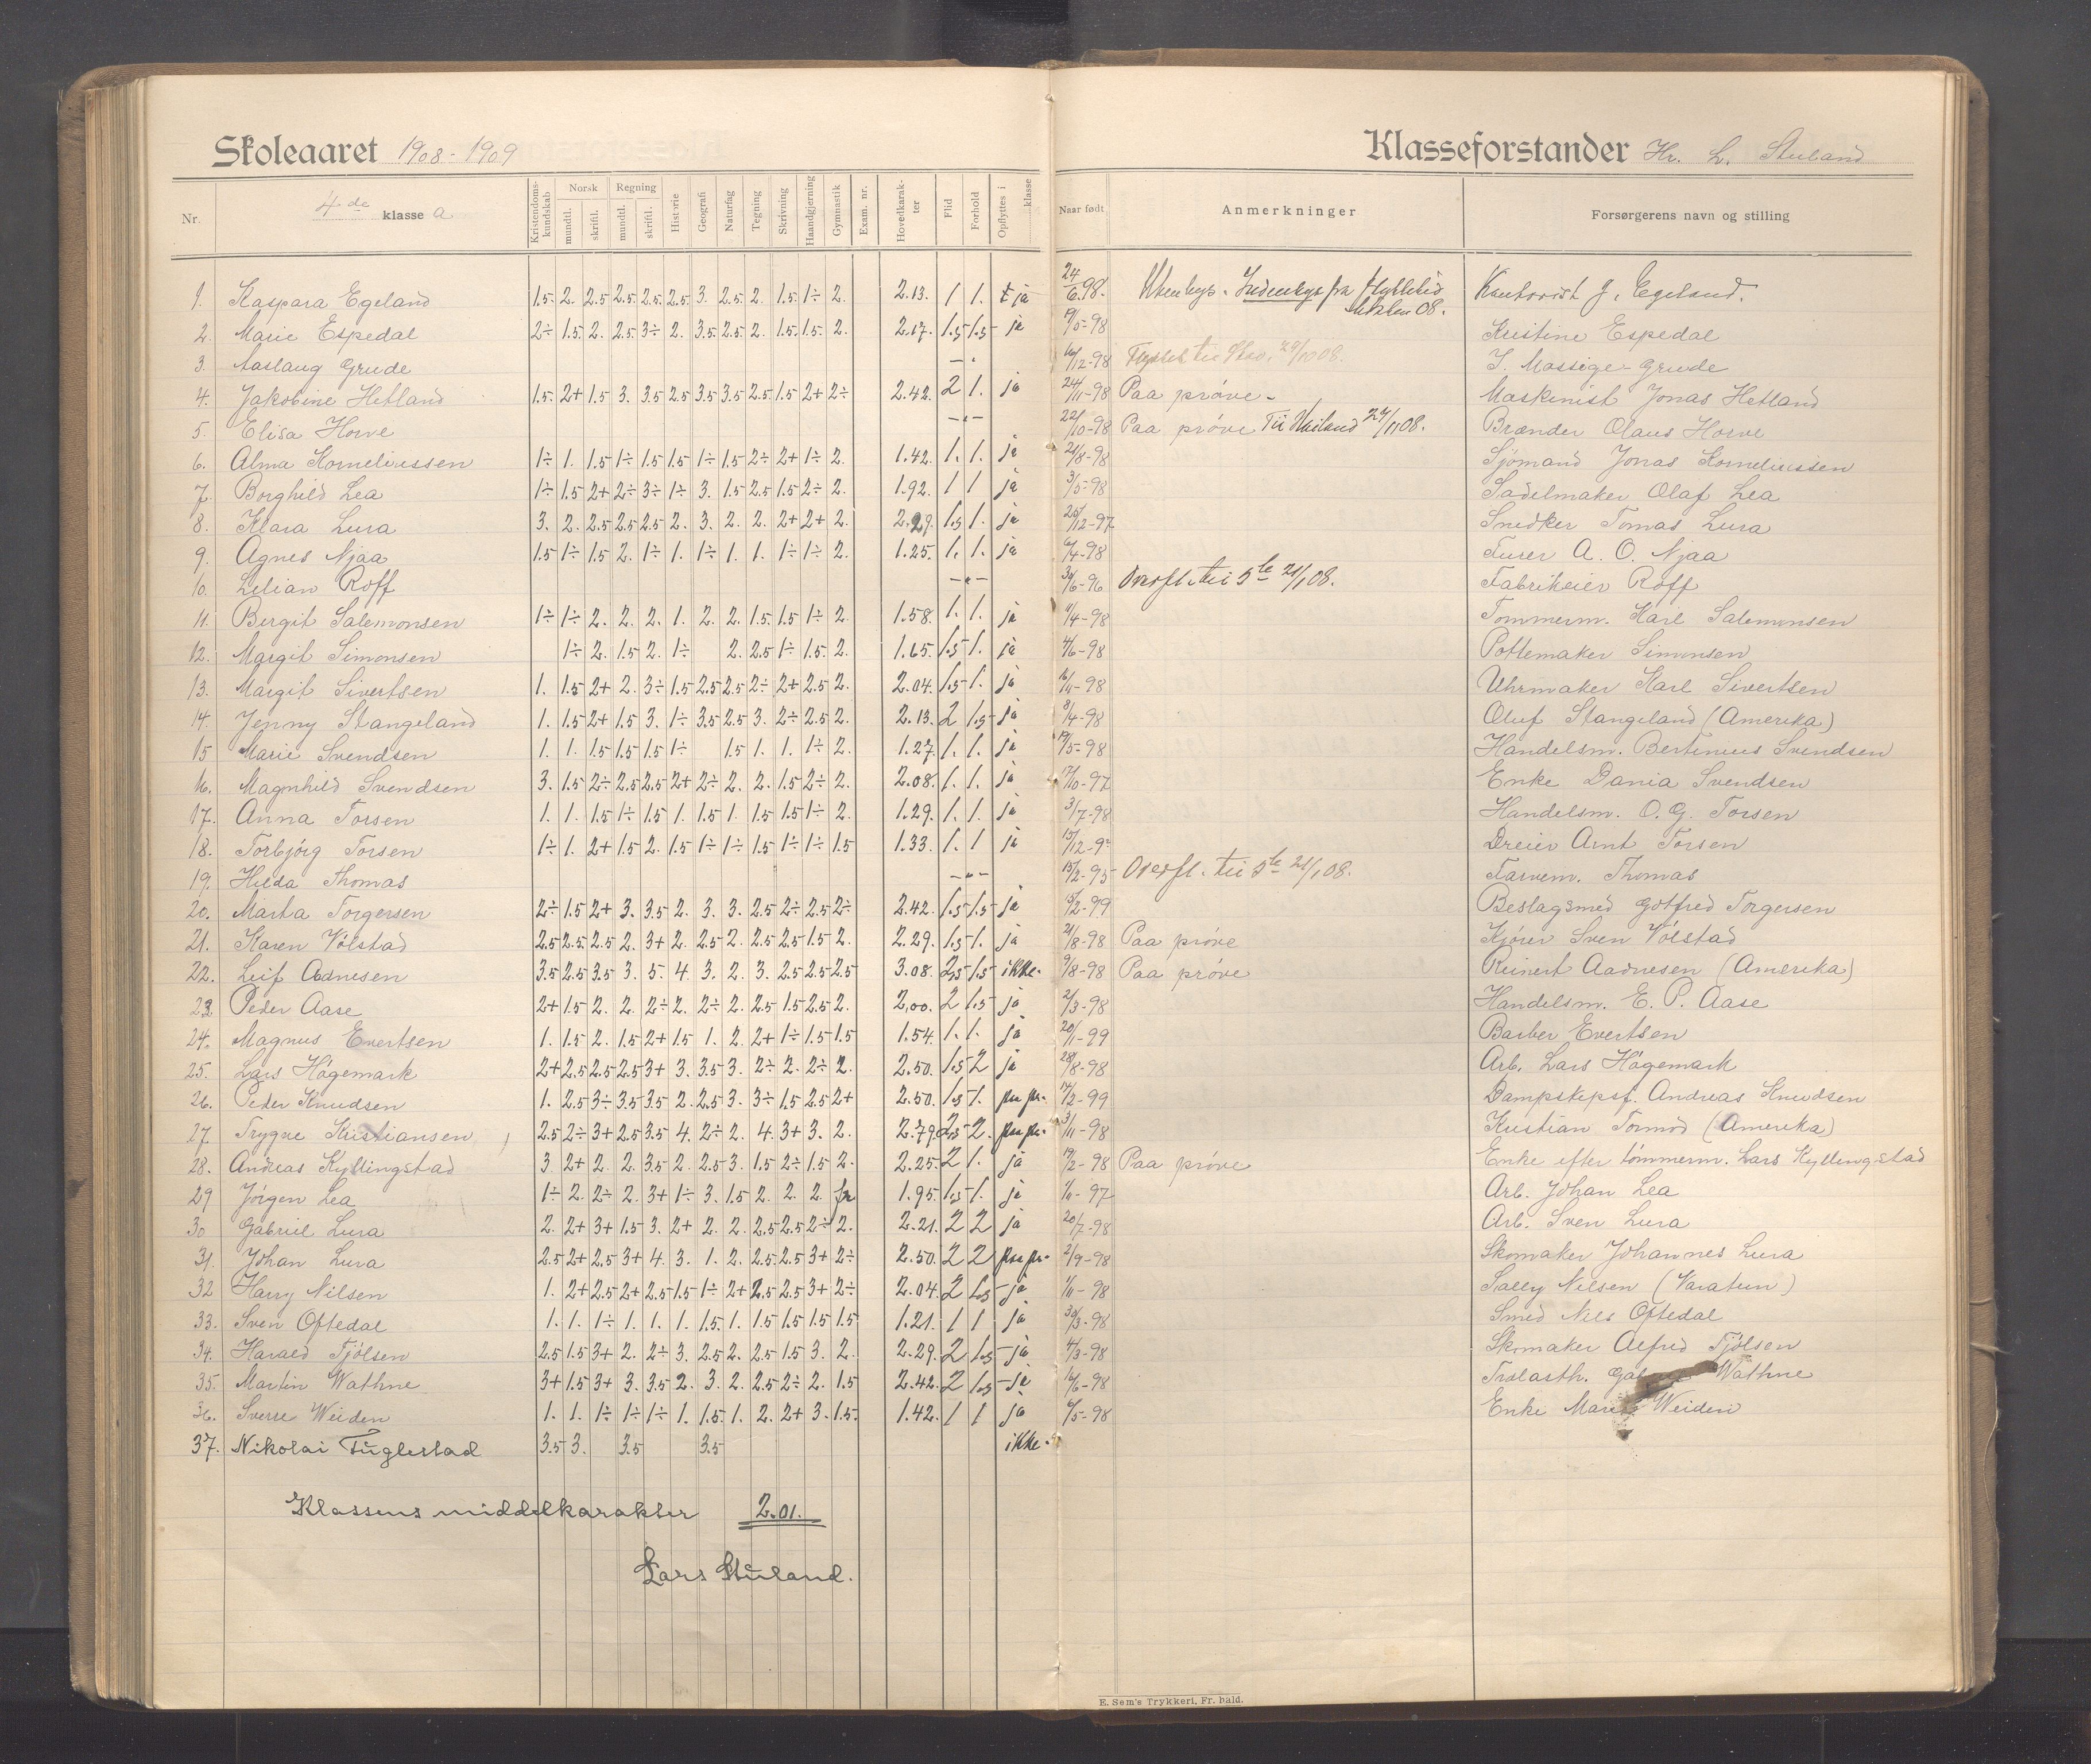 Skoleaaret 1908-1909
Klasseforstander Hr. L. Stuland
Nr.
4de klasse a
Kristendoms-kundskab
Norsk
mundtl.
skriftl.
Regning
mundtl.
skriftl.
Historie
Geografi
Naturfag
Tegning
Skrivning
Haandgjerning
Gymnastik
Exam. nr.
Hovedkarak-ter
Flid
Forhold
Opflyttes i klasse
Naar født
Anmerkninger
Forsørgerens navn og stilling
1. Kaspara Egeland 1.5 2. 2.5 2.5 2.5 2.5 3. 2.5 2. 1.5 1÷ 2. 2.13. 1 1. ja 24/6.98. Utenbys. Indenbys fra Kontorist J. Egeland.
08.
2. Marie Espedal 2÷ 1.5 2. 2.5 3÷ 2. 3.5 2.5 2. 1.5 1.5 2. 2.17. 1.5 1.5 ja 9/5-98 Kristine Espedal
3. Aaslaug Grude — 16/12-98 Flyttet til 29/10 08. J. Mossige-Grude
4. Jakobine Hetland 1.5 2+ 1.5 3. 3.5 2.5 3.5 3.5 2.5 1.5 2+ 2÷ 2.42. 2 1. ja 24/11-98 Paa prøve- Maskinist Jonas Hetland
5. Elisa Horve — 22/10-98 Paa prøve Til 24/11 08. Brænder Olaus Horve
6. Alma Korneliussen 1÷ 1. 1.5 1÷ 1.5 1.5 1÷ 1.5 2÷ 2+ 1÷ 2. 1.42. 1. 1. ja 21/8-98 Sjömand Jonas Korneliussen
7. Borghild Lea 1÷ 1.5 2+ 2÷ 3÷ 1÷ 3. 1.5 2.5 1.5 2÷ 2. 1.92. 1 1 ja 3/5-98 Sadelmaker Olaf Lea
8. Klara Lura 3. 2. 2.5 2.5 2.5 2. 3. 2. 2. 2+ 2+ 2. 2.29. 1.5 1. ja 26/12-97 Snedker Tomas Lura
9. Agnes Njaa 1.5 1÷ 1.5 2. 1÷ 1. 1÷ 1. 1. 1÷ 1÷ 2. 1.25. 1. 1. ja 6/4-98 Furer A. O. Njaa
10. Lilian Roff — 30/6-96 Overfl. til 5te 21/1 08. Fabrikeier Roff
11. Bergit Salemonsen 1÷ 1÷ 2. 2. 2. 1. 2. 2. 1.5 1.5 1÷ 2. 1.58. 1. 1. ja 9/4-98 Tommerm. Karl Salemonsen
12. Margit Simonsen 1÷ 2. 1.5 2. 1÷ 2. 2.5 1÷ 1.5 2. 1.65. 1.5 1. ja 4/6-98 Pottemaker Simonsen
13. Margit Sivertsen 1. 1.5 2+ 2. 3÷ 1.5 2.5 2.5 2÷ 2+ 2.5 2. 2.04. 1.5 1. ja 16/11-98 Uhrmaker Karl Sivertsen
14. Jenny Stangeland 1. 1.5 2+ 1.5 3. 1÷ 3.5 2.5 3. 2÷ 2.5 2. 2.13. 2 1.5 ja 8/4-98 Oluf Stangeland (Amerika)
15 Marie Svendsen 1. 1. 1.5 1.5 1.5 1÷ 1.5 1. 1. 1÷ 2. 1.27. 1. 1. ja 19/5-98 Handelsm. Bertinius Svendsen
16. Magnhild Svendsen 3. 1.5 2÷ 2.5 2.5 2+ 2÷ 2. 2. 1.5 2÷ 2. 2.08. 1. 1. ja 17/10-97 Enke Dania Svendsen
17. Anna Torsen 1. 1. 1.5 1÷ 1.5 1. 1.5 1. 1.5 1.5 1÷ 2. 1.29. 1. 1. ja 3/7-98 Handelsm. O. G. Torsen
18. Torbjörg Torsen 1÷ 1. 2+ 1.5 2. 1.5 1÷ 1÷ 1.5 1÷ 1÷ 1.5 1.33. 1. 1 ja 15/12-9 Dreier Arnt Torsen
19. Hilda Thomas — 15/2-95 Overfl. til 5te 21/1 08. Farvem. Thomas
20. Marta Torgersen 2÷ 1.5 2+ 3. 3.5 2. 3. 3. 2.5 2÷ 2.5 2÷ 2.42. 1.5 1.5 ja 15/2-99 Beslagsmed Gotfred Torgersen
21. Karen Völstad 2.5 2.5 2.5 2. 3+ 2. 2.5 2. 2.5 2.5 1.5 2. 2.29. 1.5 1. ja 21/8-98 Paa prøve Kjörer Sven Völstad
22. Leif Adnesen 3.5 2.5 3.5 3. 5. 4. 3. 2. 3. 2.5 2.5 2.5 3.08. 2.5 1.5 ikke. 9/8-98 Paa prøve Reinert Aadnesen (Amerika)
23. Peder Aase 2+ 1.5 2. 2. 2÷ 2. 2÷ 2. 2.5 1.5 2.5 2. 2.00. 2 1.5 ja 2/3-98 Handelsm. E. P. Aase
24. Magnus Evertsen 1. 1.5 2. 1.5 2+ 1.5 1. 2. 2+ 1÷ 1.5 1.5 1.54. 1. 1. ja 20/1-99 Barber Evertsen
25. Lars Högemark 2+ 2.5 2.5 2.5 3+ 3. 3.5 3. 2÷ 2. 2÷ 2. 2.50. 1.5 2 ja 28/8-98 Arb. Lars Högemark
26. Peder Knudsen 1. 2.5 3÷ 3.5 3.5 2. 2.5 3. 3÷ 1.5 2.5 2+ 2.50. 1.5 1. paa pr. 17/2-99 Dampskipsf. Andreas Knudsen
27. Trygve Kristiansen 2.5 2÷ 3+ 2.5 3.5 4. 2÷ 2. 4. 3+ 3. 2. 2.79. 2.5 2. paa pr. 3/11-98 Kristian Tormod (Amerika)
28. Andreas Kyllingstad 3 2+ 2. 2. 3.5 2. 2.5 3. 1.5 2÷ 1.5 2. 2.25. 2 1. ja 19/2-98 Paa prøve Enke efter tömmerm. Lars Kyllingstad
29 Jörgen Lea 1÷ 2. 2÷ 2. 3+ 1÷ 3. 1.5 2. 2. 2. fr 1.95. 1.5 1. ja 1/11-97 Arb. Johan Lea
30 Gabriel Lura 2. 2+ 3+ 1.5 3. 2+ 2. 2. 2.5 2.5 2÷ 2. 2.21. 2 2 ja 20/7-98 Arb. Sven Lura
31. Johan Lura 2.5 2+ 2.5 3+ 4. 3. 1. 2. 2.5 2.5 3+ 2÷ 2.50. 2 2 paa pr. 2/9-98 Skomaker Johannes Lura
32 Harry Nilsen 1. 2+ 2.5 2+ 2.5 1.5 1÷ 2+ 2.5 2.5 3+ 2÷ 2.04. 2 1.5 ja 1/11-98 Sally Nilsen (Varatun)
33. Sven Oftedal 1. 1. 1÷ 1. 1. 1. 1.5 1. 1.5 1.5 1.5 1.5 1.21. 1 1 ja 30/3-98 Smed Nils Oftedal
34. Harald Tjölsen 2.5 1.5 3+ 2. 2÷ 3. 2.5 2. 2.5 1.5 3. 2. 2.29. 2 1.5 ja 4/3-98 Skomaker Alfred Tjölsen
35. Martin Wathne 3+ 1.5 3+ 3. 3.5 2. 3. 2. 2.5 2÷ 2. 1.5 2.42. 2 1.5 ja 16/6-98 Wathne
36. Sverre Weiden 1. 1. 1÷ 1÷ 1÷ 1. 1.5 1. 2. 2+ 3. 1.5 1.42. 1 1 ja 6/5-98 Enke Marie Weiden
37. Nikolai Fuglestad 3.5 3. 3.5 3.5 ikke.
Klassens middelkarakter 2.01.
Lars Stuland.
E. Sem's Trykkeri, Fr. hald.